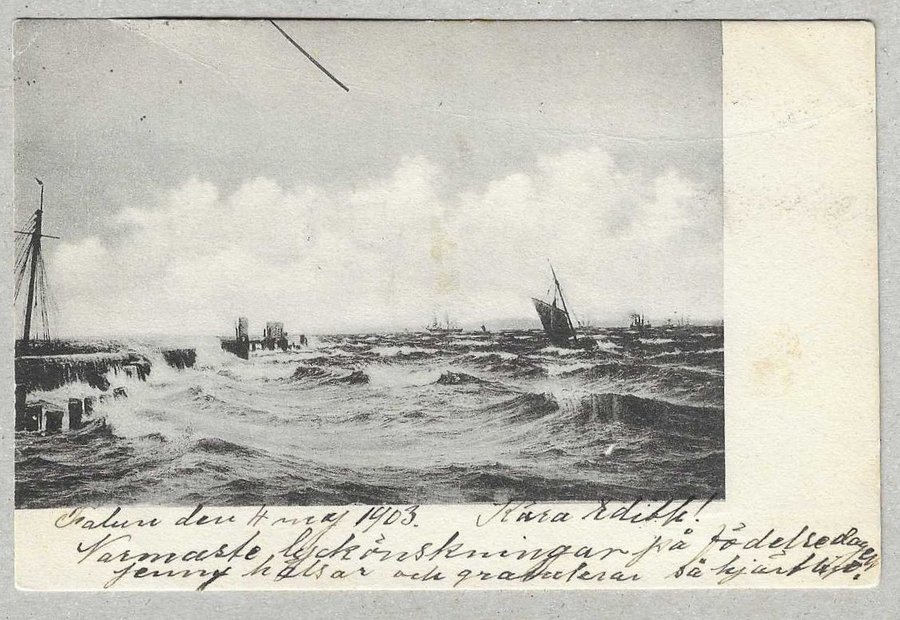 Falun den 4 maj 1903. Kära Edith!
Varmaste lyckönskningar på födelsedagen
Jenny hälsar och gratulerar så hjärtligt.